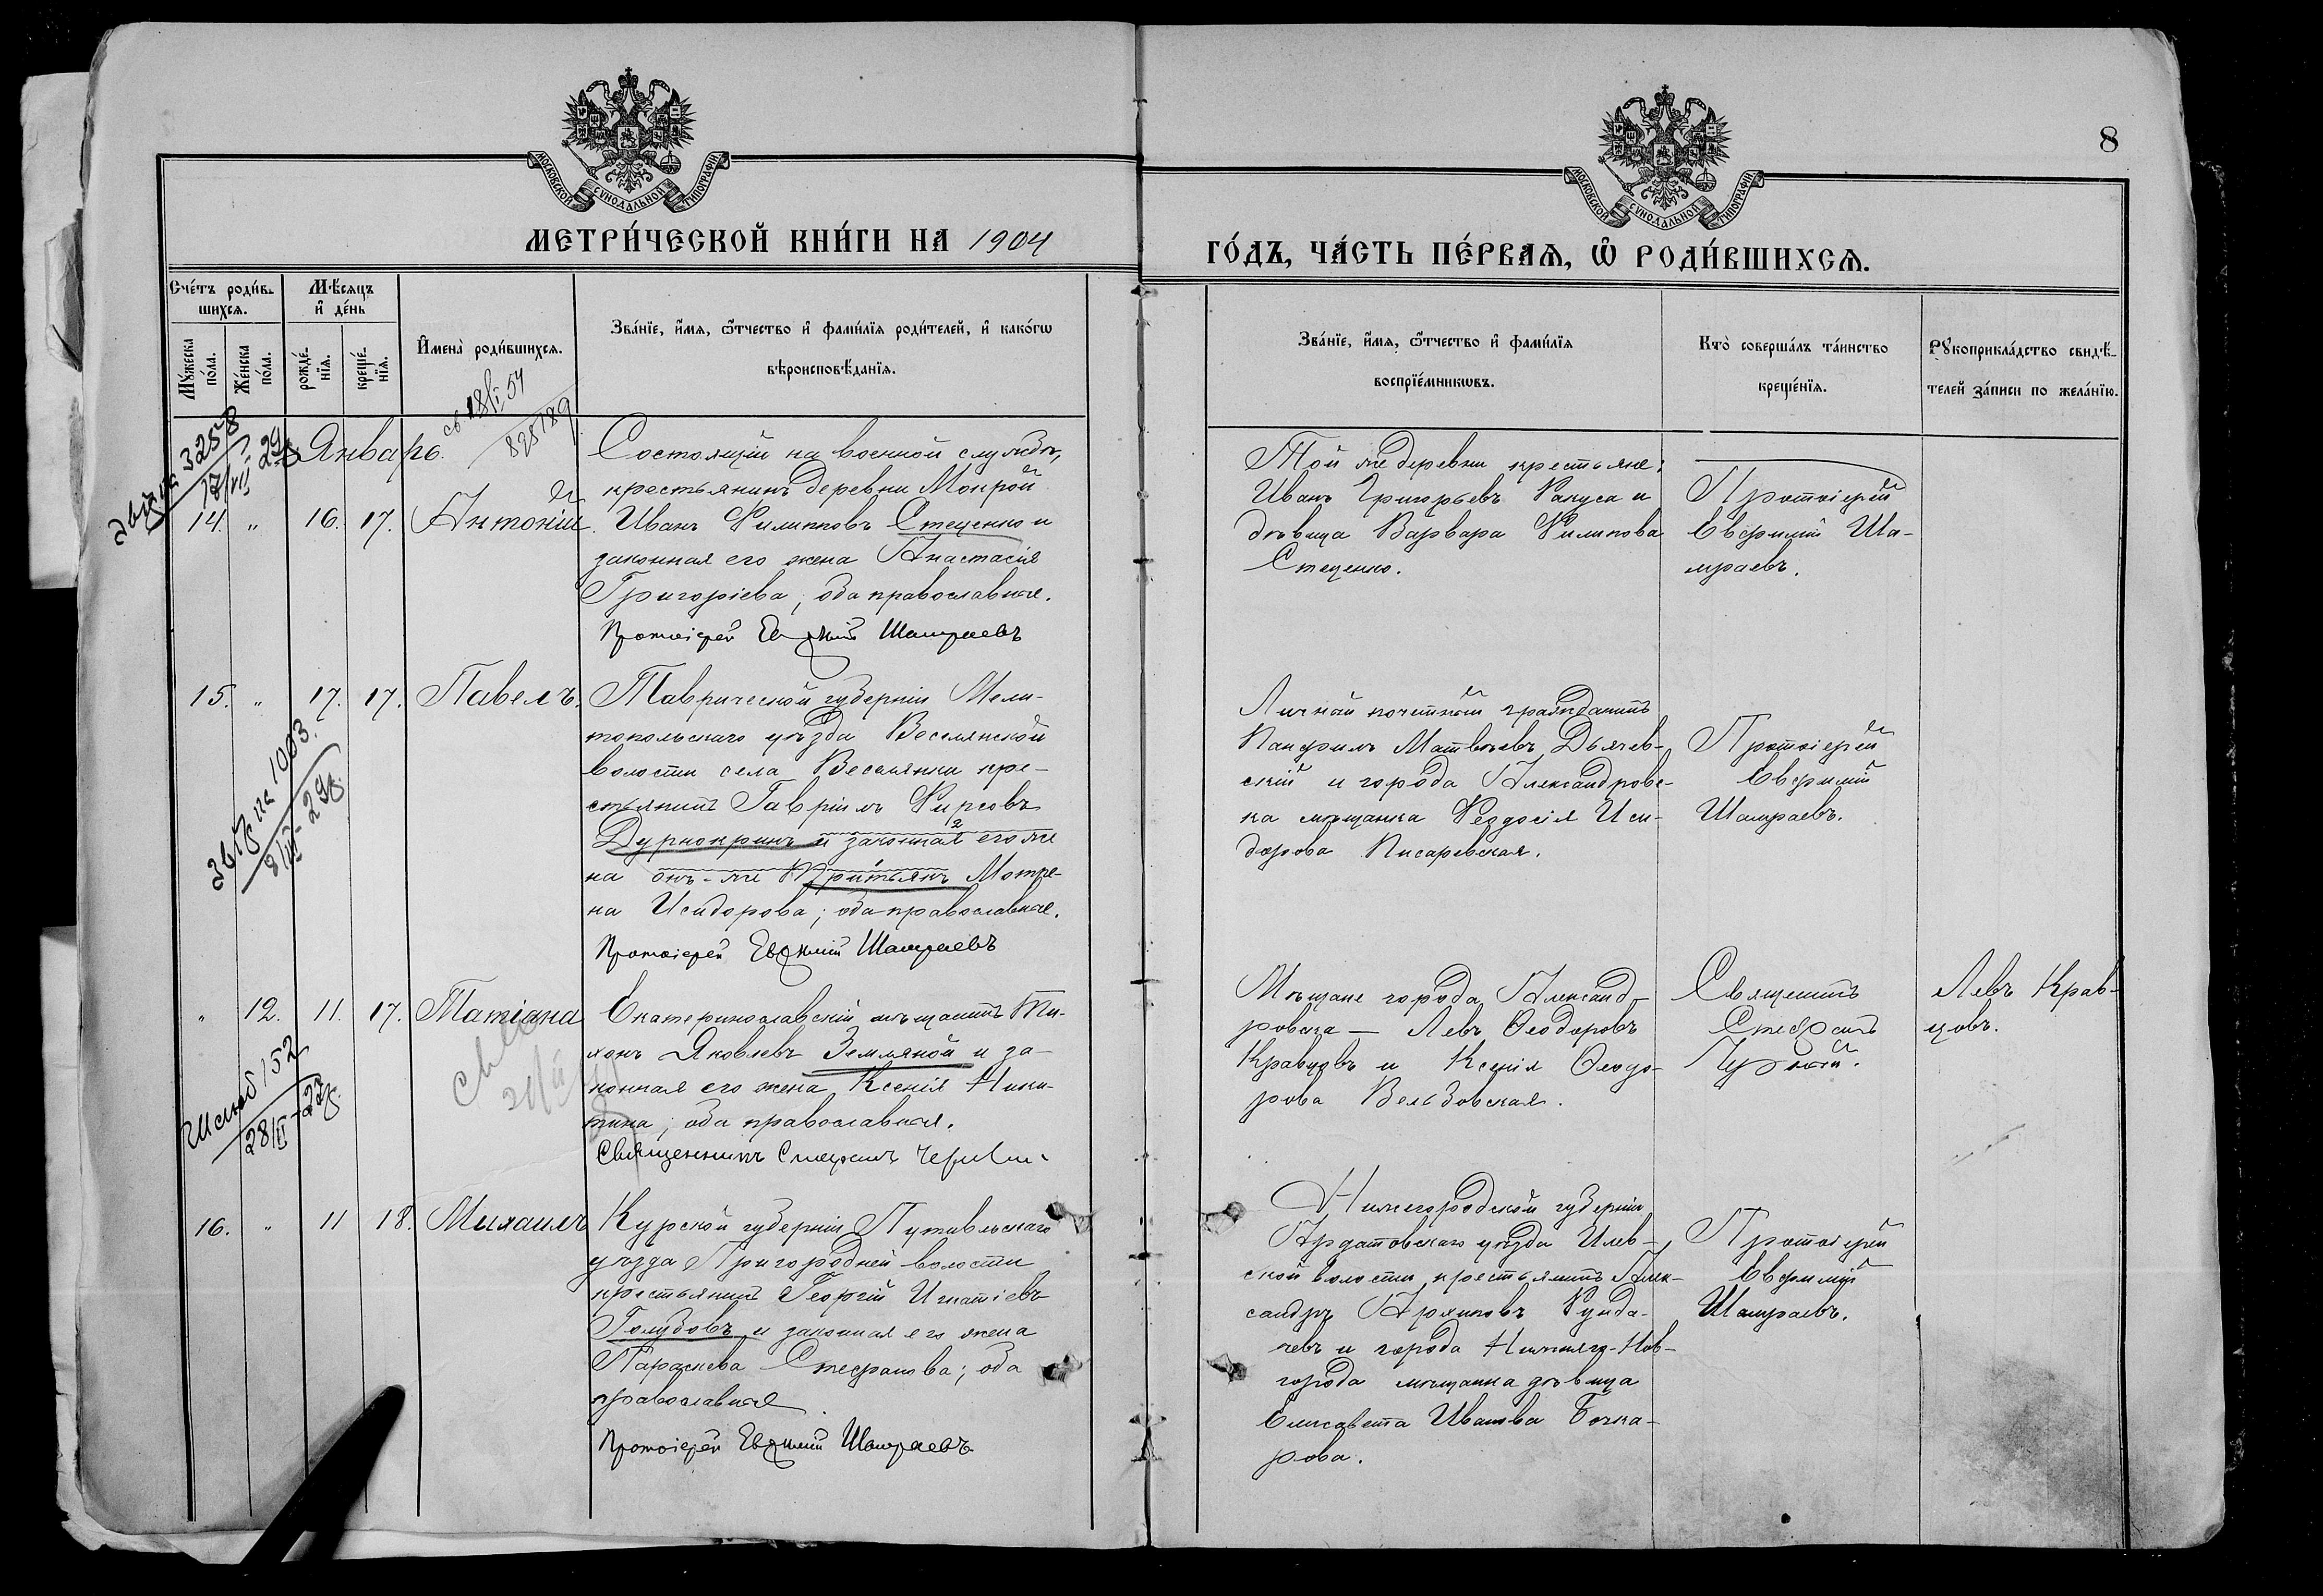 8
МОСКОВСКОЙ СѴНОДАЛЬНОЙ ТИПОГРАФІИ
МОСКОВСКОЙ СѴНОДАЛЬНОЙ ТИПОГРАФІИ
МЕТРИ́ЧЕСКОЙ КНИ́ГИ НА 1904
ГО́ДЪ, ЧА́СТЬ ПЕ́РВАѦ, Ѽ РОДИ́ВШИХСѦ.
Сче́тъ роди́в-
шихсѧ.
Му́жеска по́ла.
Же́нска по́ла.
Мѣ́сѧцъ
и҆ де́нь
рожде́-
нїѧ.
креще́-
нїѧ.
И҆мена̀ роди́вшихсѧ.
Зва́нїе, и҆́мѧ, ѻ҆́тчество и҆ фами́лїѧ роди́телей, и҆ како́гѡ
вѣроисповѣ́данїѧ.
Зва́нїе, и҆́мѧ, ѻ҆́тчество и҆ фами́лїѧ
воспрїе́мникѡвъ.
Кто̀ соверша́лъ та́инство
креще́нїѧ.
Рꙋкоприкла́дство свидѣ́-
телей за́писи по жела́нїю.
3258
29
Январь.
14. " 16. 17. Антоній
Состоящій на военной службѣ,
крестьянинъ деревни Мокрой
Иванъ Филипповъ Стеценко и
законная его жена Анастасія
Григоріева, оба православные.
Протоіерей Евфимій Шамраевъ
Той же деревни крестьяне:
Иванъ Григорьевъ Ракуса и
дѣвица Варвара Филипова
Стеценко.
Протоіерей
Евфимій Ша-
мраевъ.
15. " 17. 17. Павелъ.
на 1003.
Таврической губерніи Мели-
топольскаго уѣзда Веселянской
волости села Веселянки кре-
стьянинъ Гавріилъ Фирсовъ
Дурнокринъ и законная его же
на онъ-же Мотре-
на Исидорова; оба православные.
Протоіерей Евфимій Шамраевъ
Личный почетный гражданинъ
Панфилъ Матвѣевъ Дьячев-
скій и города Александровс-
ка мѣщанка Феодосія Иси-
дорова Писаревская.
Протоіерей
Евфимій
Шамраевъ.
" 12. 11. 17. Татіана
152
28/II
Екатеринославскій мѣщанинъ Ти-
хонъ Яковлевъ Земляной и за-
конная его жена Ксенія Ники-
тина; оба православные.
Священникъ Стефанъ
Мѣщане города Александ-
ровска — Левъ Ѳеодоровъ
Кравцовъ и Ксенія Ѳеодо-
рова
Священникъ
Стефанъ
Левъ Крав-
цовъ.
16. " 11 18. Михаилъ
Курской губерніи Путивльскаго
уѣзда Пригородней волости
крестьянинъ Георгій Игнатіевъ
Голубовъ и законная его жена
Параскева Стефанова; оба
православные
Протоіерей Евфимій Шамраевъ
Нижегородской губерніи
Ардатовскаго уѣзда Илев-
ской волости крестьянинъ Алек-
сандръ
и города Нижняго-Нов-
города мѣщанка дѣвица
Елисавета Иванова Бочка-
рова.
Протоіерей
Евфимій
Шамраевъ.